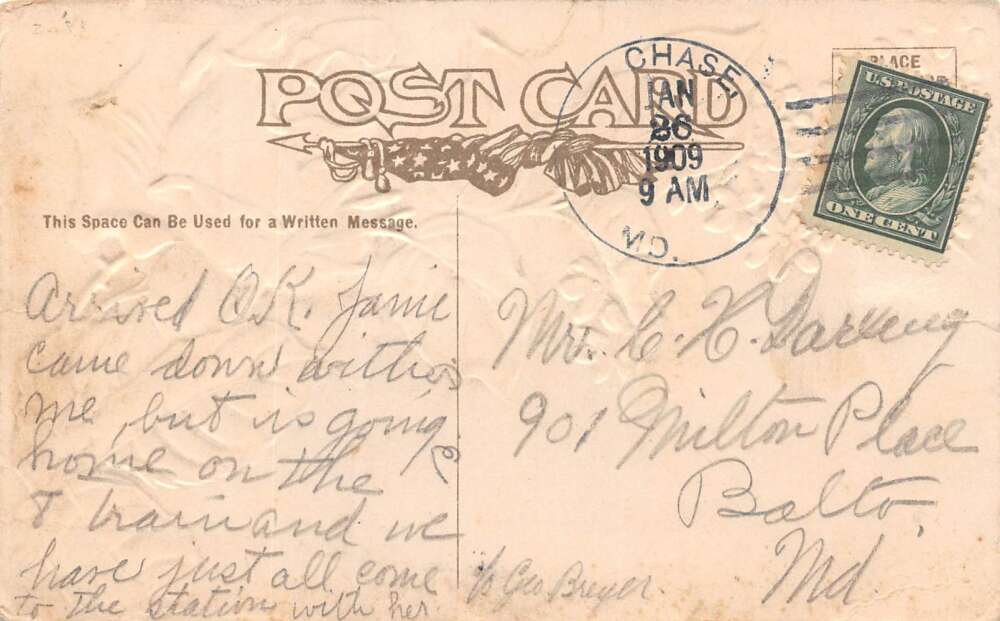 POST CARD
CHASE,
JAN
26
1909
9 AM
MD.
PLACE
U.S. POSTAGE
ONE CENT
This Space Can Be Used for a Written Message.
Arrived O.K. Janie
came down with
me, but is going
home on the
8 train and we
have just all come
to the station with her
Mrs. C. H. Darling
901 Milton Place
Balto.
Md.
c/o Geo Breyer